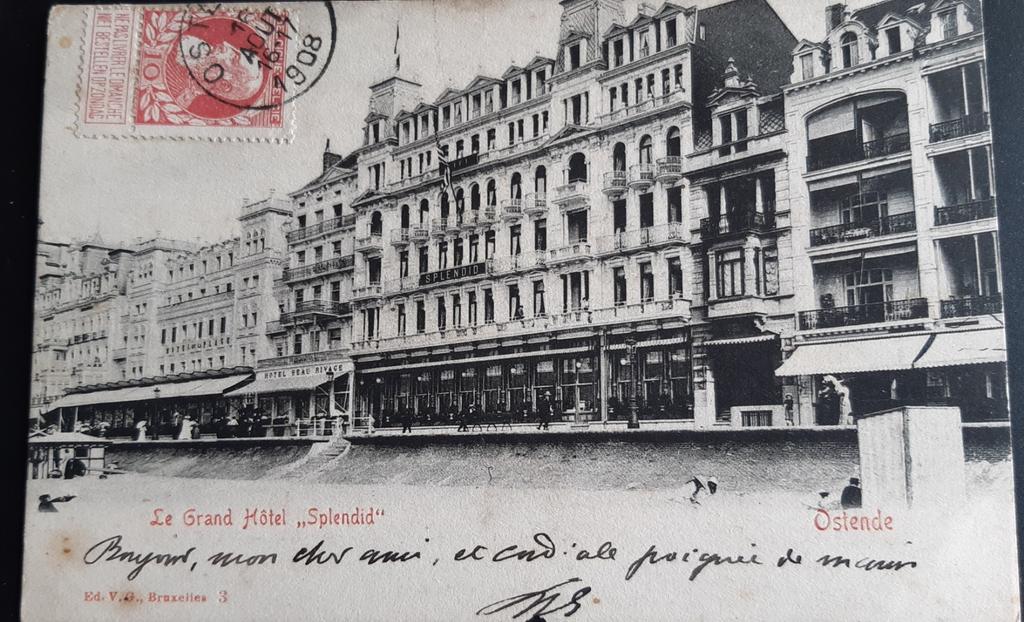 NE PAS LIVRER LE DIMANCHE
NIET BESTELLEN OP ZONDAG
10
BELGIE
AOUT
16-17
1908
SPLENDID
HOTEL BEAU RIVAGE
Le Grand Hôtel „Splendid"
Ostende
Bonjour, mon cher ami, et cordiale poignée de main
Ed. V. G., Bruxelles 3